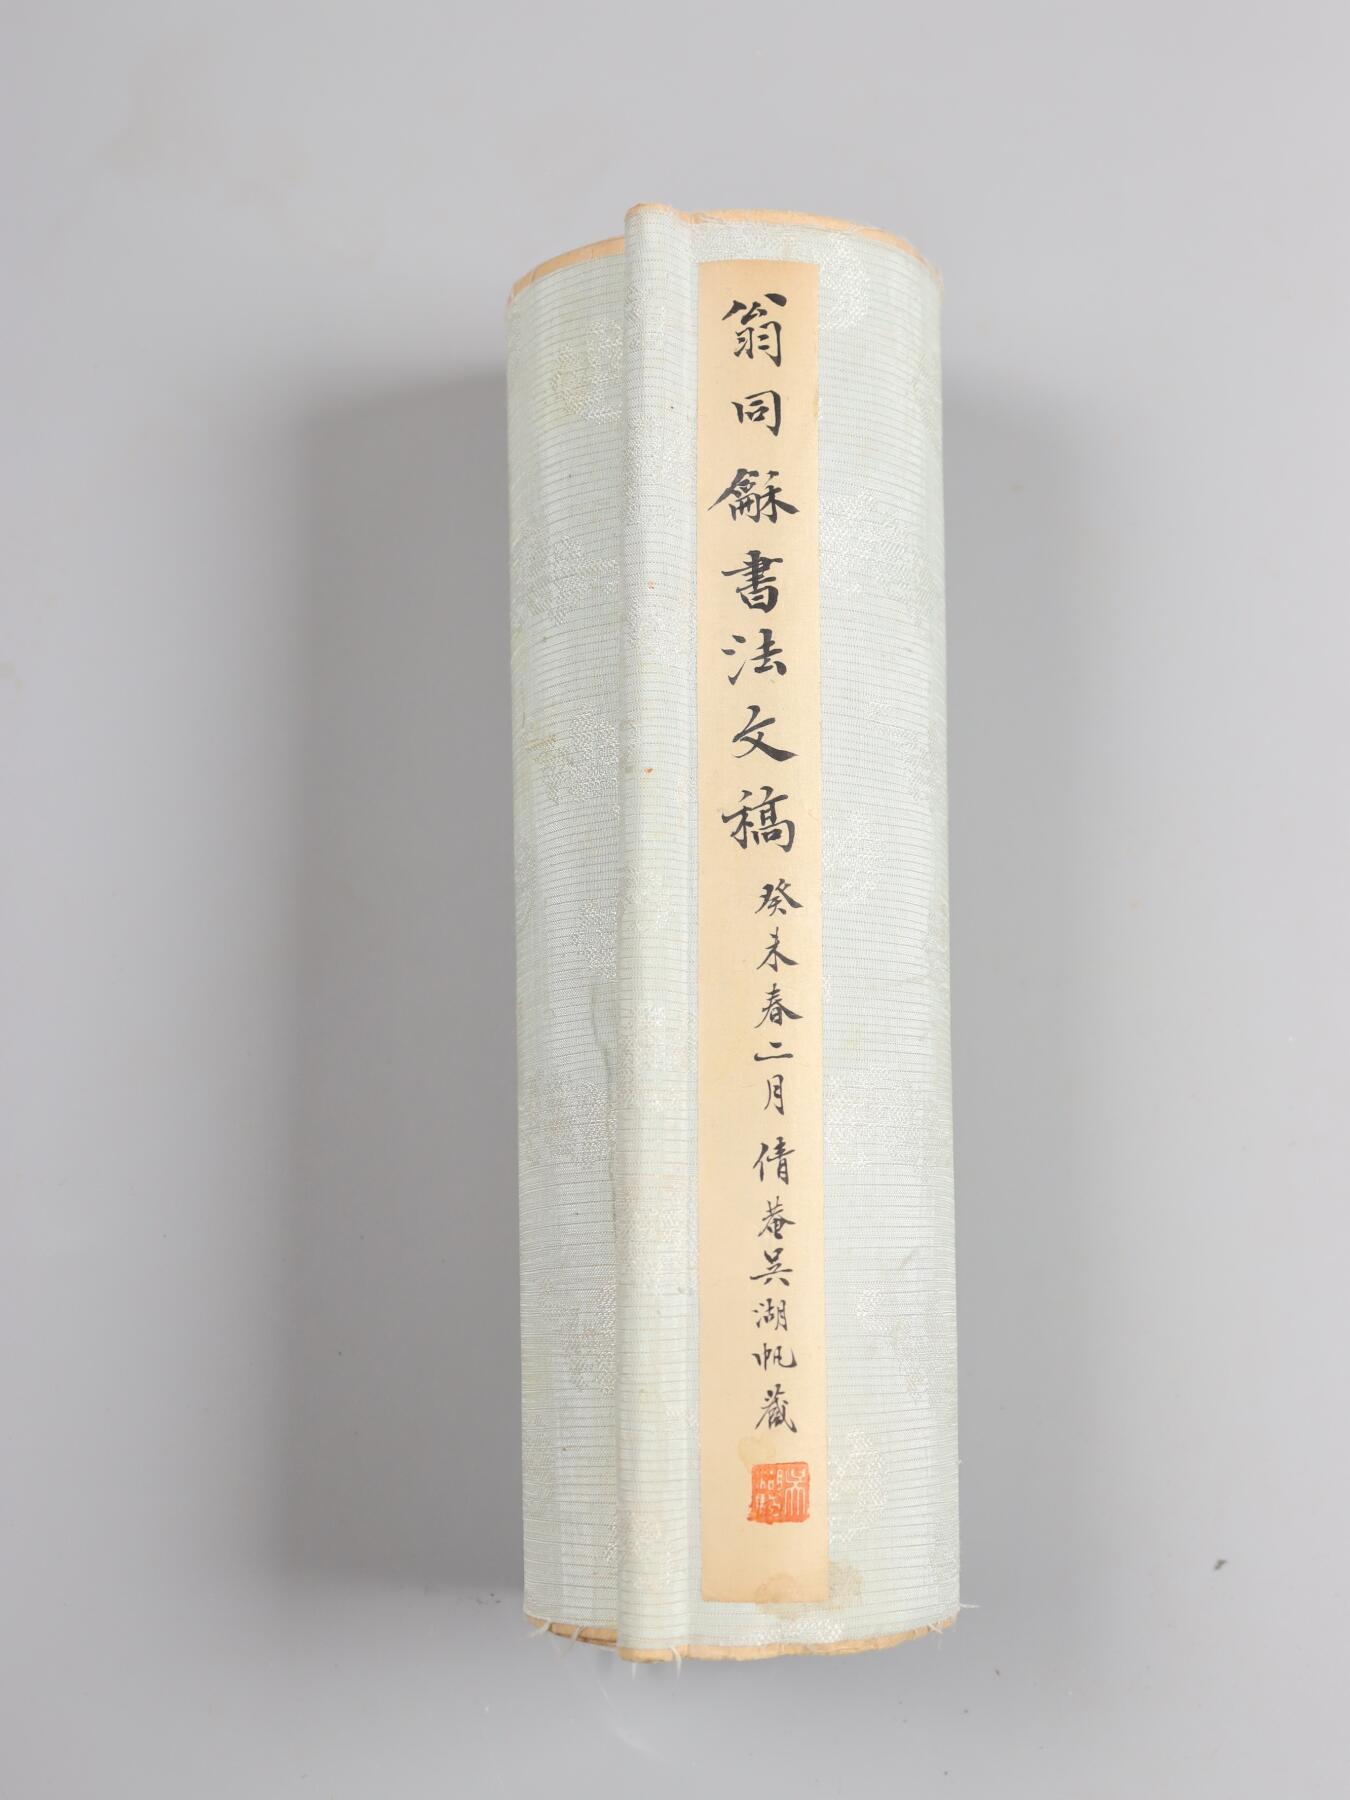 翁同龢書法文稿 癸未春二月 倩菴吳湖帆藏